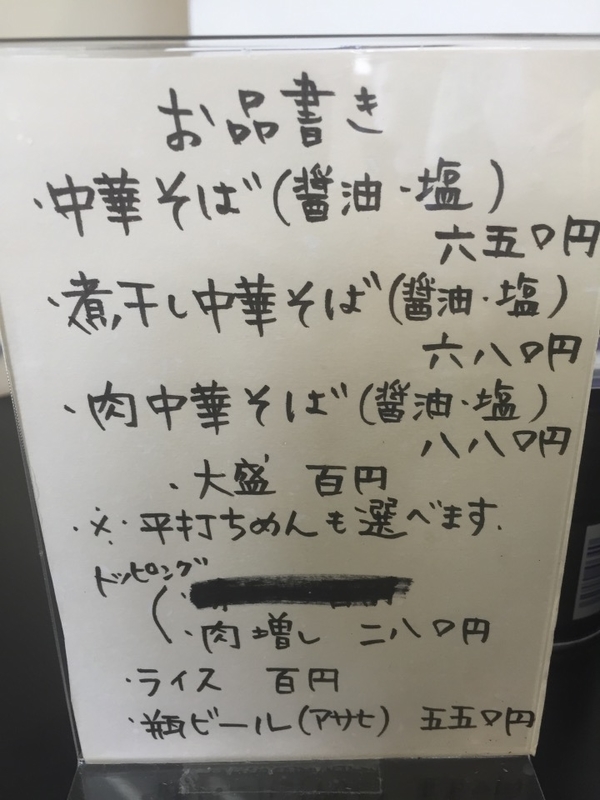 お品書き
・中華そば(醤油・塩)
六五〇円
・煮干し中華そば(醤油・塩)
六八〇円
・肉中華そば(醤油・塩)
八八〇円
・大盛 百円
・※・平打ちめんも選べます.
トッピング
・肉増し 二八〇円
・ライス 百円
・瓶ビール(アサヒ) 五五〇円